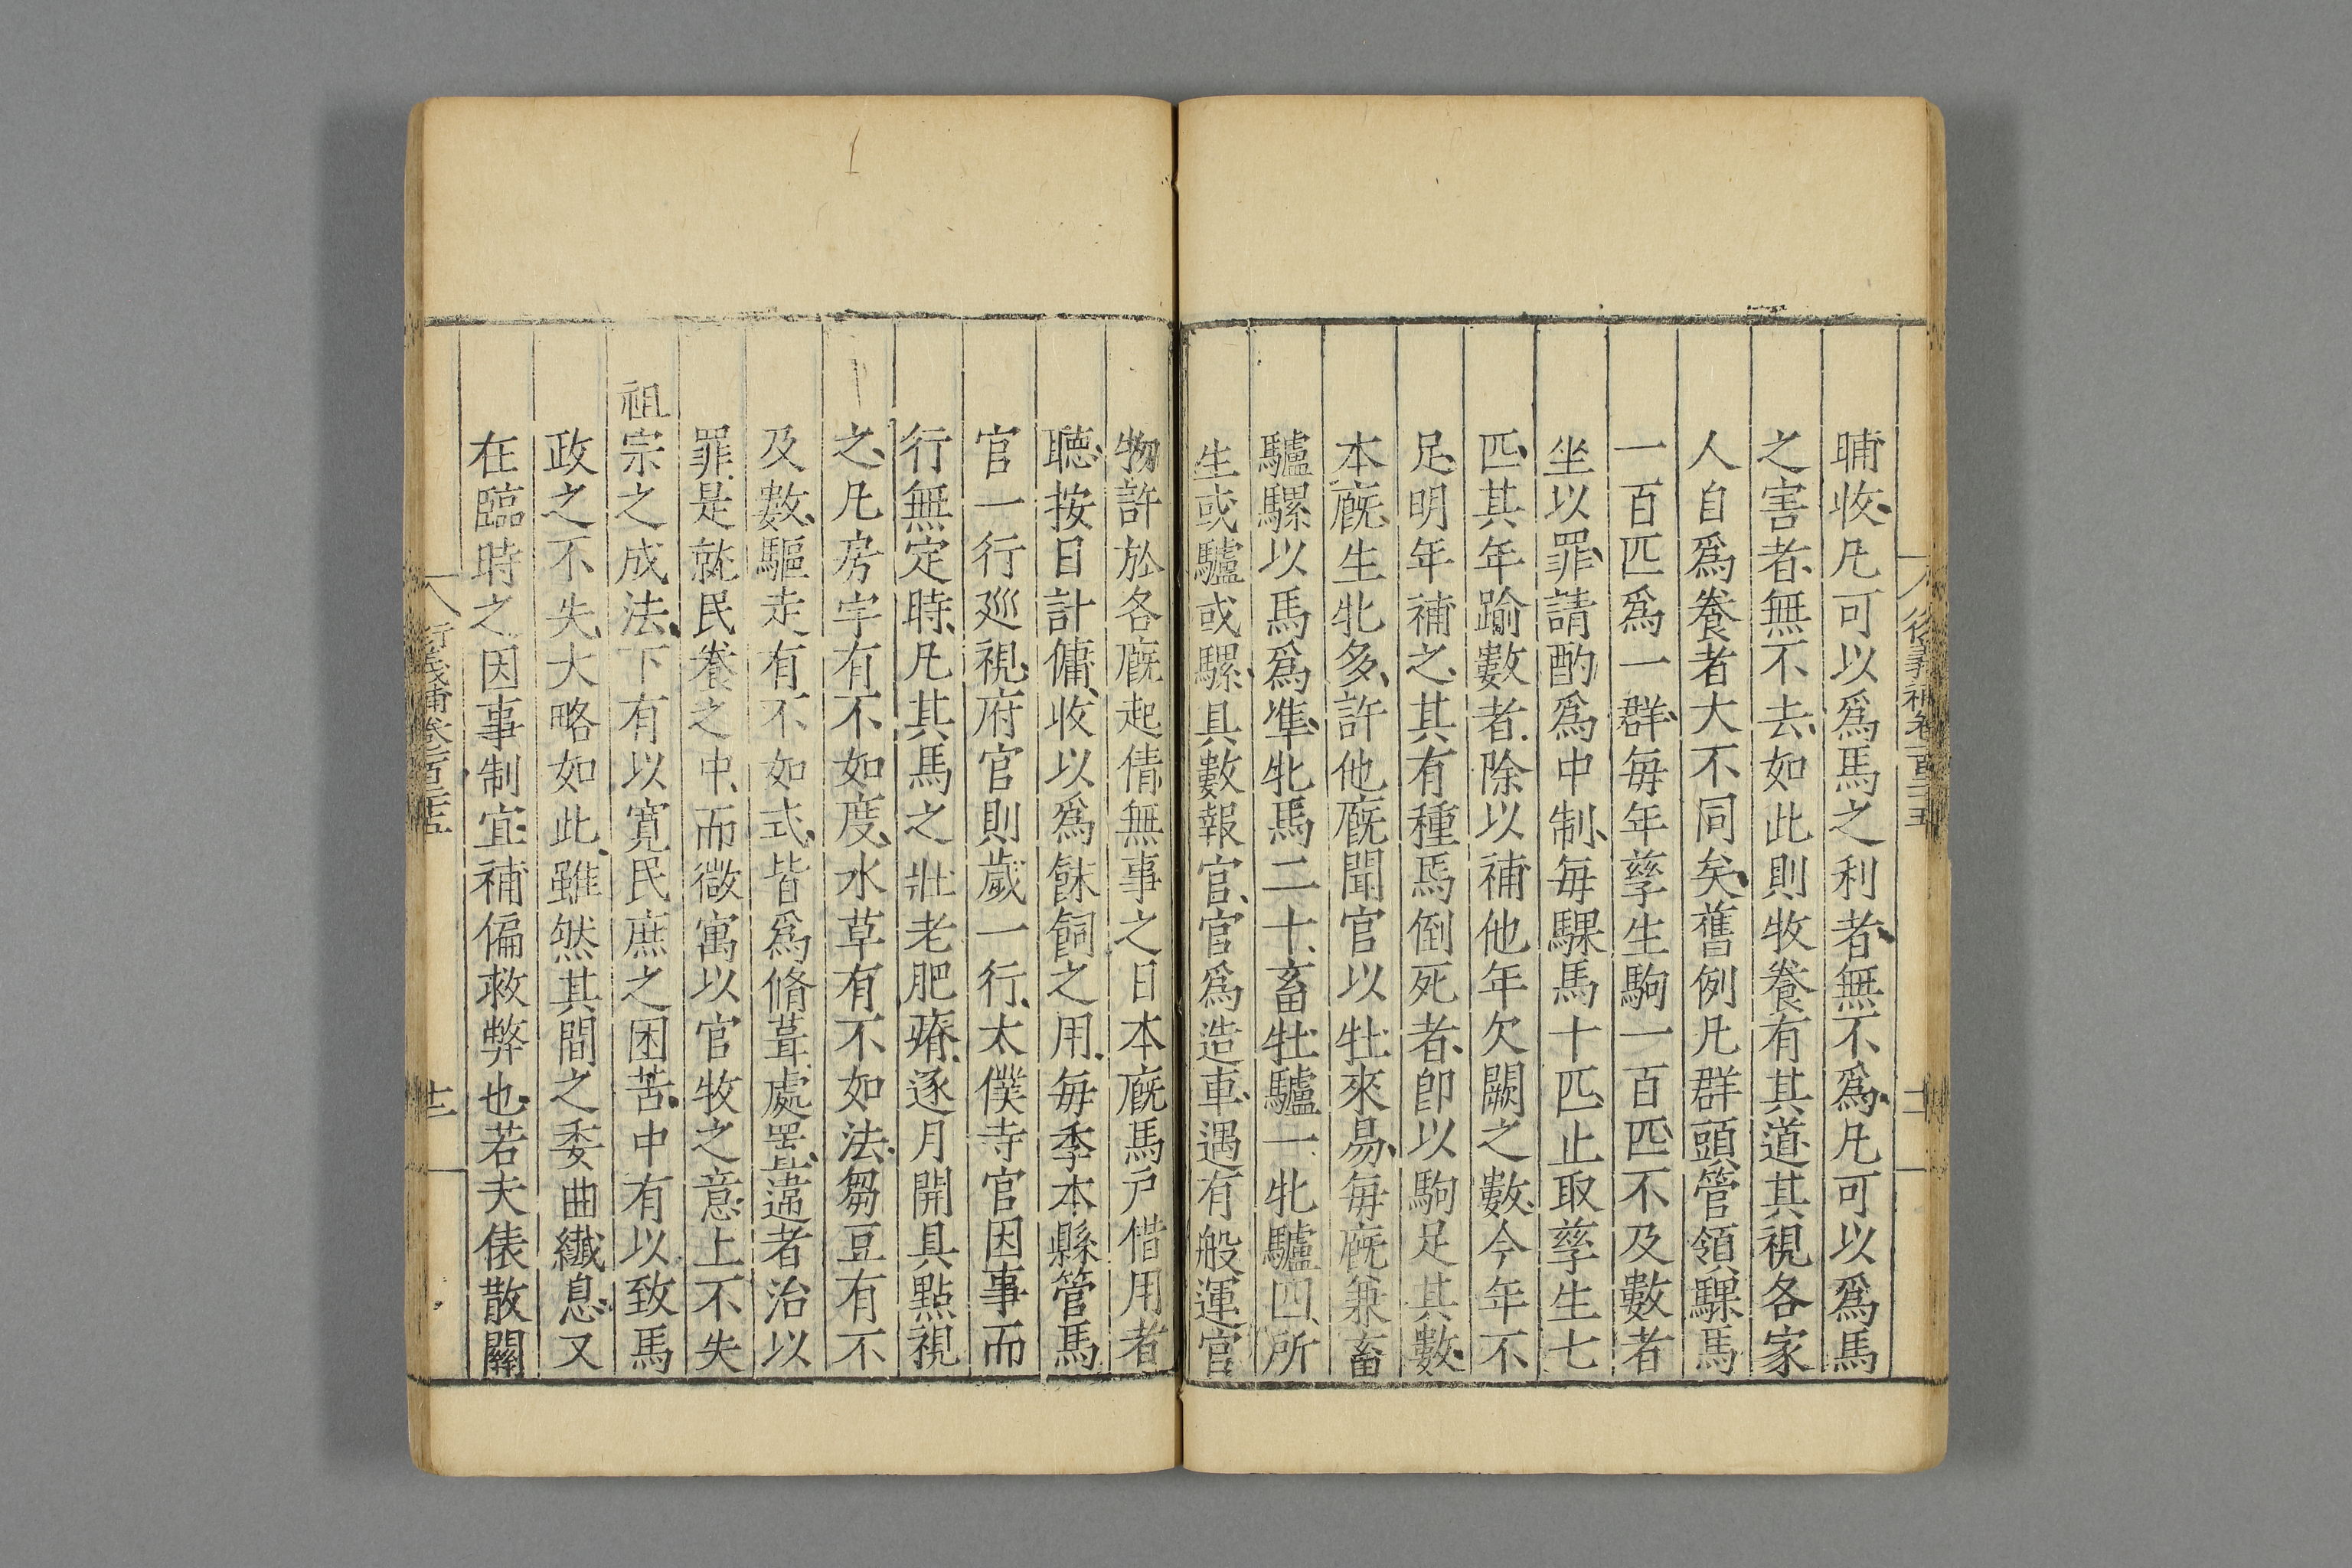 晡收凡可以爲馬之利者無不爲凡可以爲馬
之害者無不去如此則牧養有其道其視各家
人自爲養者大不同矣舊例凡群頭管領騍馬
一百匹爲一群每年孳生駒一百匹不及數者
坐以罪請酌爲中制每騍馬十匹止取孳生七
匹其年踰數者除以補他年欠闕之數今年不
足明年補之其有種馬倒死者卽以駒足其數
本廐生牝多許他廐聞官以牡來易每廐兼畜
驢騾以馬爲準牝馬二十畜牡驢一牝驢四所
生或驢或騾具數報官官爲造車遇有般運官
物許於各廐起倩無事之日本廐馬戶借用者
聽按日計傭收以爲餗飼之用每季本縣管馬
官一行廵視府官則歲一行太僕寺官因事而
行無定時凡其馬之壯老肥瘠逐月開具點視
之凡房宇有不如度水草有不如法芻豆有不
及數驅走有不如式皆爲脩葺處置違者治以
罪是就民養之中而微寓以官牧之意上不失
祖宗之成法下有以寬民庶之困苦中有以致馬
政之不失大略如此雖然其間之委曲纖息又
在臨時之因事制宜補偏救弊也若夫俵散關